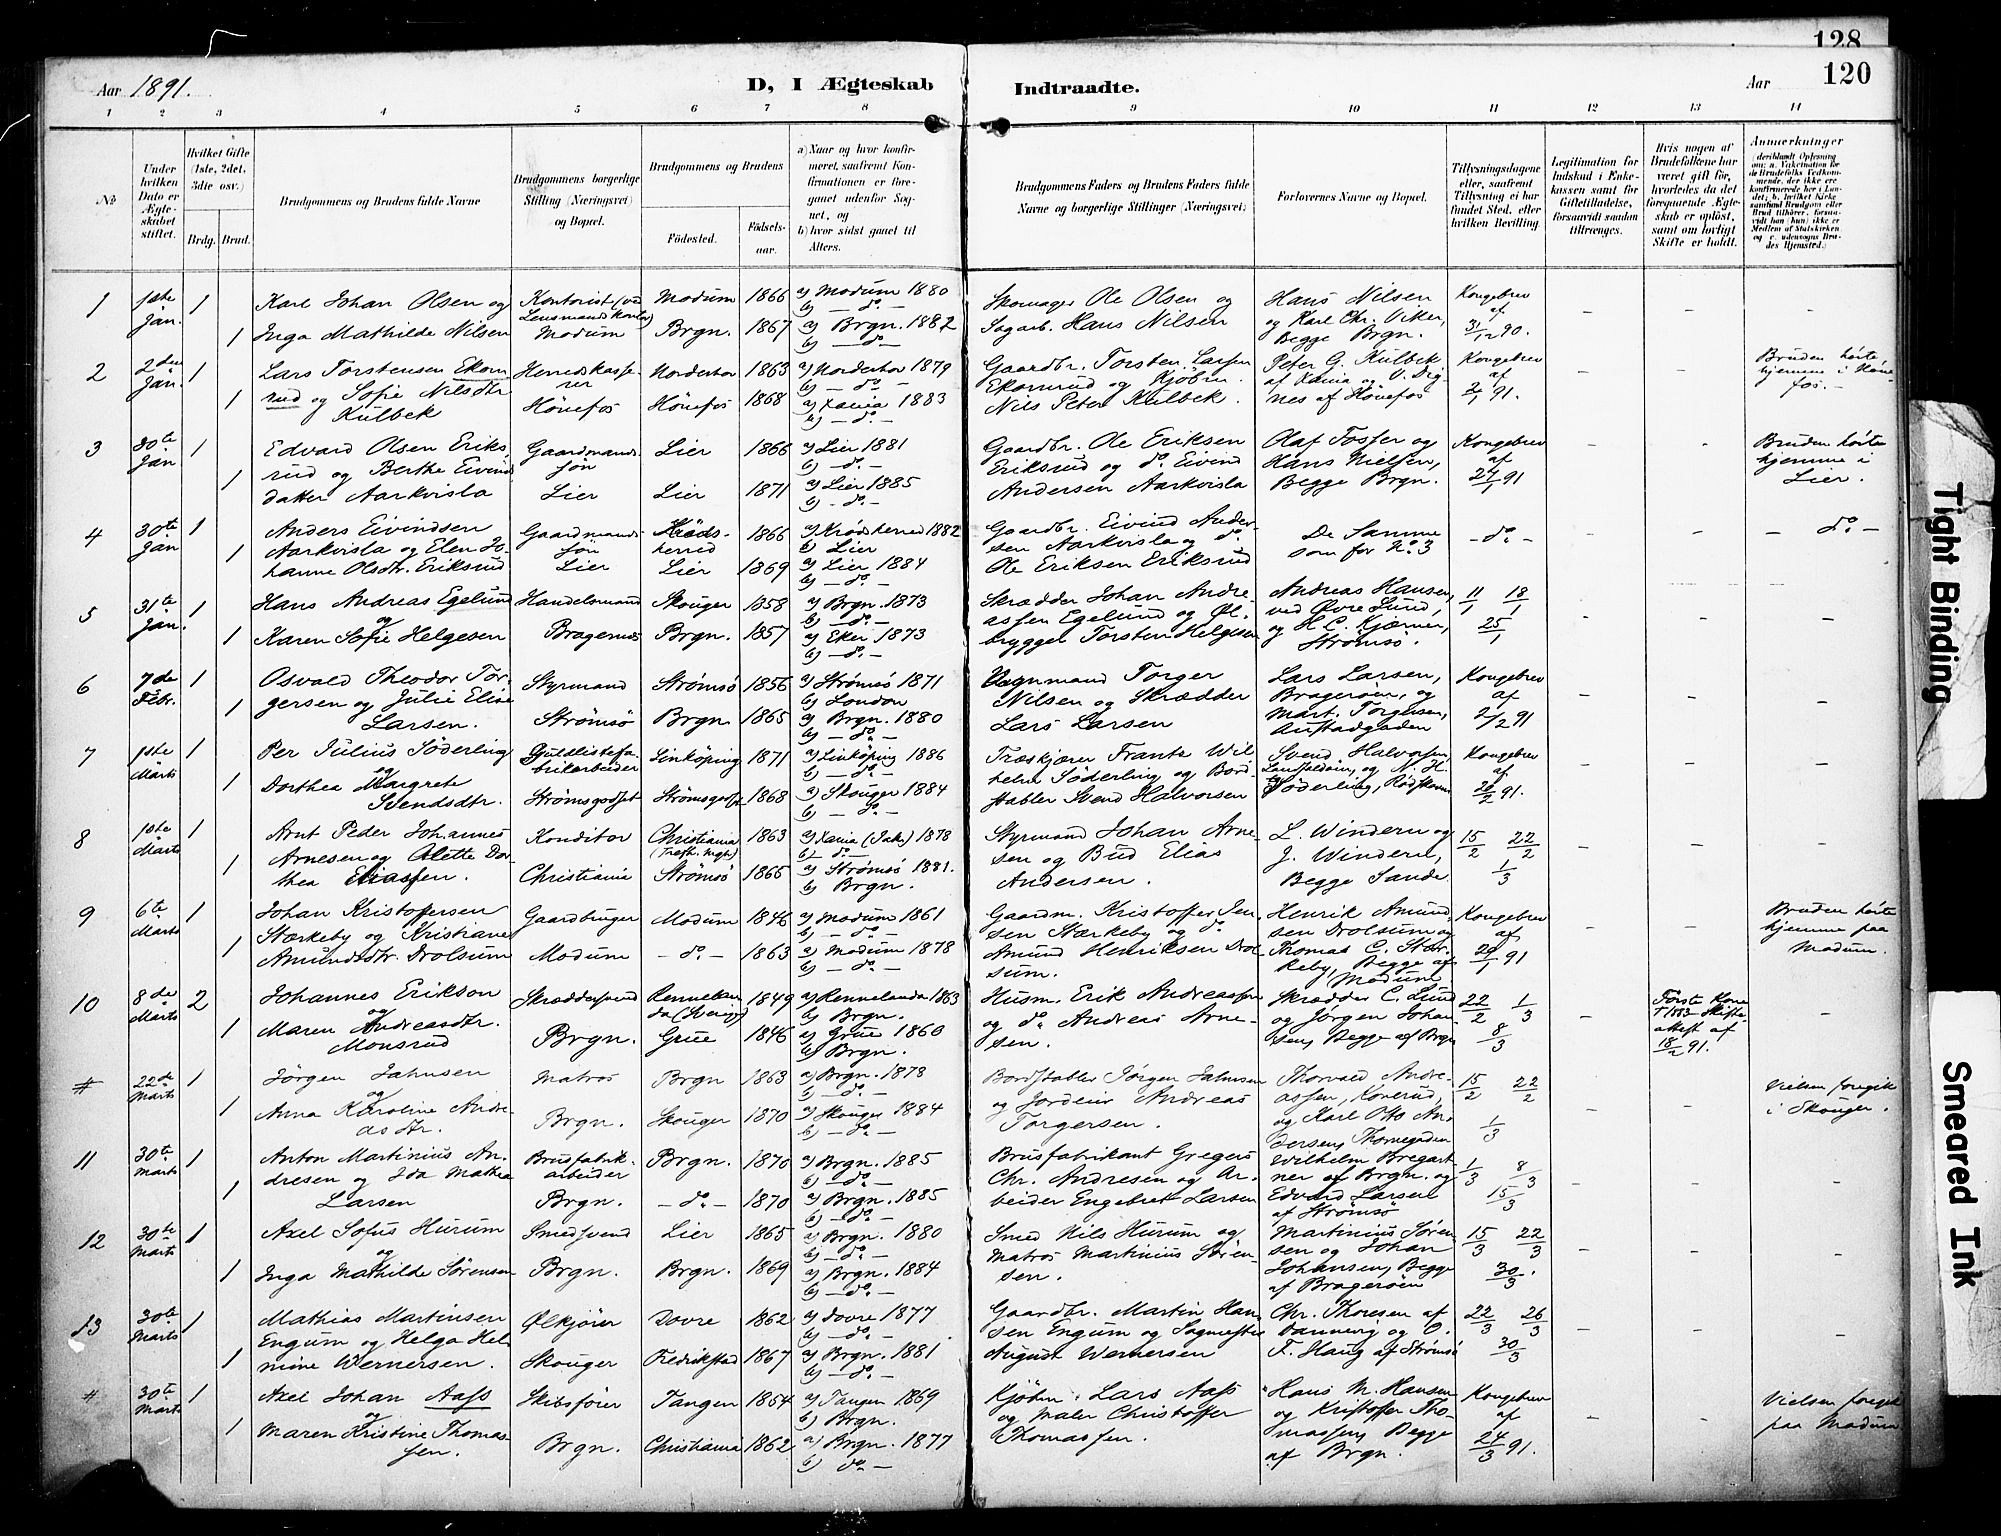 128
120
Aar 1891.
D, I Ægteskab Indtraadte.
Aar
1 2 3 4 5 6 7 8 9 10 11 12 13 14
No
Under hvilken Dato er Ægteskabet stiftet.
Hvilket Gifte (1ste, 2det, 3die osv.)
Brdg. Brud.
Brudgommens og Brudens fulde Navne
Brudgommens borgerlige Stilling (Næringsvei) og Bopæl.
Brudgommens og Brudens
Fødested.
Fødselsaar.
a) Naar og hvor konfirmeret, saafremt Konfirmationen er foregaaet udenfor Sognet, og
b) hvor sidst gaaet til Alters.
Brudgommens Faders og Brudens Faders fulde Navne og borgerlige Stillinger (Næringsvei)
Forlovernes Navne og Bopæl.
Tillysningsdagene eller, saafremt Tillysning ei har fundet Sted, efter hvilken Bevilling.
Legitimation for Indskud i Enkekassen samt for Giftetilladelse, forsaavidt saadan tiltrænges.
Hvis nogen af Brudefolkene har været gift før, hvorledes da det foregaaende Ægteskab er opløst, samt om lovligt Skifte er holdt.
Anmærkninger
1 1ste Jan. 1 1 Karl Johan Olsen og Inga Mathilde Nilsen
Kontorist (ved Lensmandskontor) Modum
Modum 1866 a) Modum 1880 b) – do. –
Brgn. 1867 a) Brgn. 1882 b) – do. –
Skomager Ole Olsen og Sagarb. Hans Nilsen
Hans Nilsen og Karl Chr. Viker, Begge Brgn.
Kongebrev af 31/12 90.
2 2den Jan. 1 1 Lars Torstensen Ekornrud og Sofie Nilsdtr Kulbek
Herredskasserer Hönefos
Norderhov 1863 a) Norderhov 1879 b) – do. –
Hönefos 1868 a) Xania 1883 b) – do. –
Gaardbr. Torsten Larsen Ekornrud og Kjöbm. Nils Peter Kulbek.
Peter G. Kulbek af Xania og
Kongebrev af 2/1 91.
Bruden hørte hjemme i Hönefos. –
3 30te Jan 1 1 Edvard Olsen Eriksrud og Berthe Eivindsdatter Aarkvisla
Gaardmandssön Lier
Lier 1866 a) Lier 1881 b) – do. –
Lier 1871 a) Lier 1885 b) – do. –
Gaardbr. Ole Eriksen Eriksrud og do. Eivind Andersen Aarkvisla
Olaf Fosser og Hans Nielsen, Begge Brgn.
Kongebrev af 27/1 91
Bruden hørte hjemme i Lier.
4 30te Jan 1 1 Anders Eivindsen Aarkvisla og Elen Johanne Olsdtr. Eriksrud
Gaardmandssön Lier
Krödsherred 1866 a) Krødsherred 1882 b) Lier
Lier 1869 a) Lier 1884 b) – do. –
Gaardbr. Eivind Andersen Aarkvisla og do. Ole Eriksen Eriksrud
De Samme som for No. 3
– do. –
– do. –
5 31te Jan. 1 1 Hans Andreas Egelund og Karen Sofie Helgesen
Handelsmand Bragernes
Skouger 1858 a) Brgn. 1873 b) – do. –
Brgn. 1857 a) Eker 1873 b) – do. –
Skrædder Johan Andreassen Egelund og Ølbrygger Torsten Helgesen
Andreas Hansen, ved Øvre Lund, og H. C. Kjærner, Strömsö.
11/1 18/1 25/1
6 7de Febr. 1 1 Osvald Theodor Torgersen og Julie Elise Larsen.
Styrmand Strömsö
Strömsö 1856 a) Strömsö 1871 b) London
Brgn. 1865 a) Brgn. 1880 b) – do. –
Vognmand Torger Nilsen og Skrædder Lars Larsen
Lars Larsen, Bragerøen, og Mart. Torgersen, Austadgaden
Kongebrev af 2/2 91
7 1ste Marts 1 1 Per Julius Söderling og Dorthea Margrete Svendsdtr.
Guldlistefabrikarbeider Strömsgodset
Linköping 1871 a) Linköping 1886 b) – do. –
Strömsgodset 1868 a) Skouger 1884 b) – do. –
Træskjærer Frantz Wilhelm Söderling og Bordstabler Svend Halvorsen
Svend Halvorsen, og Söderling,
Kongebrev af 28/2 91.
8 1ste Marts 1 1 Arnt Peder Johannes Arnesen og Olette Dorthea Eliassen.
Konditor Christiania
Christiania 1863 a) Xania (Jak.) 1878 b) – do. –
Strömsö 1865 a) Strömsö 1881. b) Brgn.
Styrmand Johan Arnesen og Bud Elias Andersen.
L. Windern og J. Windern, Begge Sande.
15/2 22/2 1/3
9 6te Marts 1 1 Johan Kristoffersen Stærkeby og Kristiane Amundsdtr. Drolsum
Gaardbruger Modum
Modum 1846 a) Modum 1861 b) – do. –
– do. – 1863 a) Modum 1878 b) – do. –
Gaardm. Kristoffer Jensen Stærkeby og do. Amund Henriksen Drolsum.
Henrik Amundsen Drolsum og Thomas C. Stærkeby, Begge af Modum
Kongebrev af 29/1 91
Bruden hörte hjemme paa Modum.
10 8de Marts 2 1 Johannes Erikson og Maren Andreasdtr. Monsrud
Skræddersvend Brgn.
1849 1863 b) Brgn.
Grue 1846 a) Grue 1860 b) Brgn.
Husm. Erik Andreassen og do. Andreas Arnesen.
Skrædder C. Lund og Jörgen Johansen, Begge af Brgn
22/2 1/3 8/3
Første Kone † 1883 Skifteattest af 18/2 91.
# 22de Marts 1 1 Jörgen Jahnsen og Anna Karoline Andreasdtr.
Matros Brgn.
Brgn 1863 a) Brgn. 1878 b) – do. –
Skouger 1870 a) Skouger 1884 b) – do. –
Bordstabler Jørgen Jahnsen og Jordeier Andreas Torgersen.
Thorvald Andreassen, Konerud, og Karl Otto Andersen, Thornegaden
15/2 22/2 1/3
Vielsen foregik i Skouger.
11 30te Marts 1 1 Anton Martinius Andresen og Ida Mathea Larsen
Brusfabrikarbeider Brgn.
Brgn. 1870 a) Brgn. 1885 b) – do. –
– do. – 1870 a) Brgn. 1885 b) – do. –
Brusfabrikant Gregers Chr. Andresen og Arbeider Engebret Larsen
Wilhelm Bregartner af Brgn. og Edvard Larsen af Strömsö
1/3 8/3 15/3
12 30te Marts 1 1 Axel Sofus Hurum og Inga Mathilde Sørensen
Smedsvend Brgn.
Lier 1865 a) Brgn. 1880 b) – do. –
Brgn. 1869 a) Brgn. 1884 b) – do. –
Smed Nils Hurum og Matros Martinius Sørensen.
Martinius Sørensen og Johan Johansen, Begge af Bragerøen
15/3 22/3 30/3.
13 30te Marts 1 1 Mathias Martinsen Engum og Helga Helmine Wernersen.
Ølkjører Skouger
Dovre 1862 a) Dovre 1877 b) – do. –
Fredrikstad 1867 a) Brgn. 1881 b) – do. –
Gaardbr. Martin Hansen Engum og Sagmester August Wernersen
Chr. Thoresen af Danmvig og O. F. Haug af Strömsö
22/3 26/3 30/3
# 30te Marts 1 1 Axel Johan Aass og Maren Kristine Thomassen.
Skibsfører Brgn.
Tangen 1854 a) Tangen 1869 b) Brgn.
Christiania 1862 a) Brgn. 1877 b) do. –
Kjøbm. Lars Aass og Maler Christoffer Thomassen.
Hans M. Hansen og Kristoffer Thomassen, Begge af Brgn.
Kongebrev af 24/3 91.
Vielsen foregik paa Modum
Tight Binding
Smeared Ink